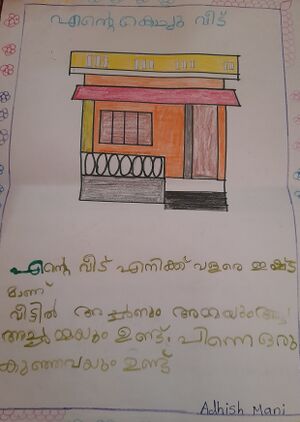 എന്റെ കൊച്ചു വീട്
എന്റെ വീട് എനിക്ക് വളരെ ഇഷ്ട
മാണ്
വീട്ടിൽ അച്ഛനും അമ്മയും
അച്ഛമ്മയും ഉണ്ട്. പിന്നെ ഒരു
കുഞ്ഞാവയും ഉണ്ട്
Adhish Mani